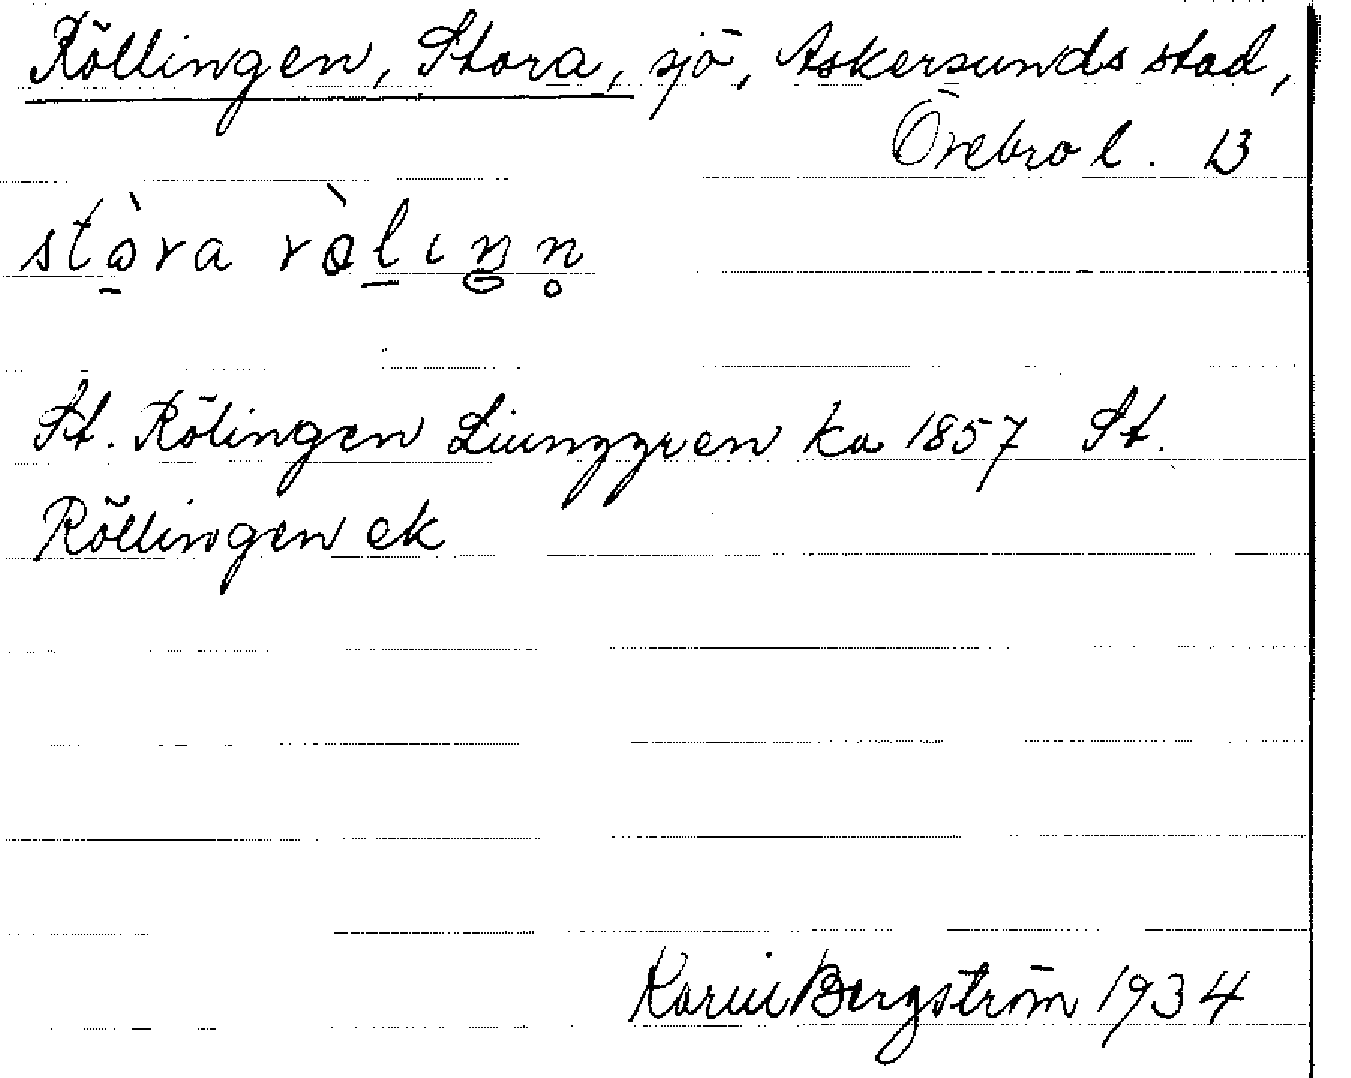 Röllingen, Stora, sjö, Askersunds stad,
Örebro l. 13
stòra ròlıŋn̥
St. Rölingen Liunggren ka 1857 St.
Röllingen ek
Karin Bergström 1934